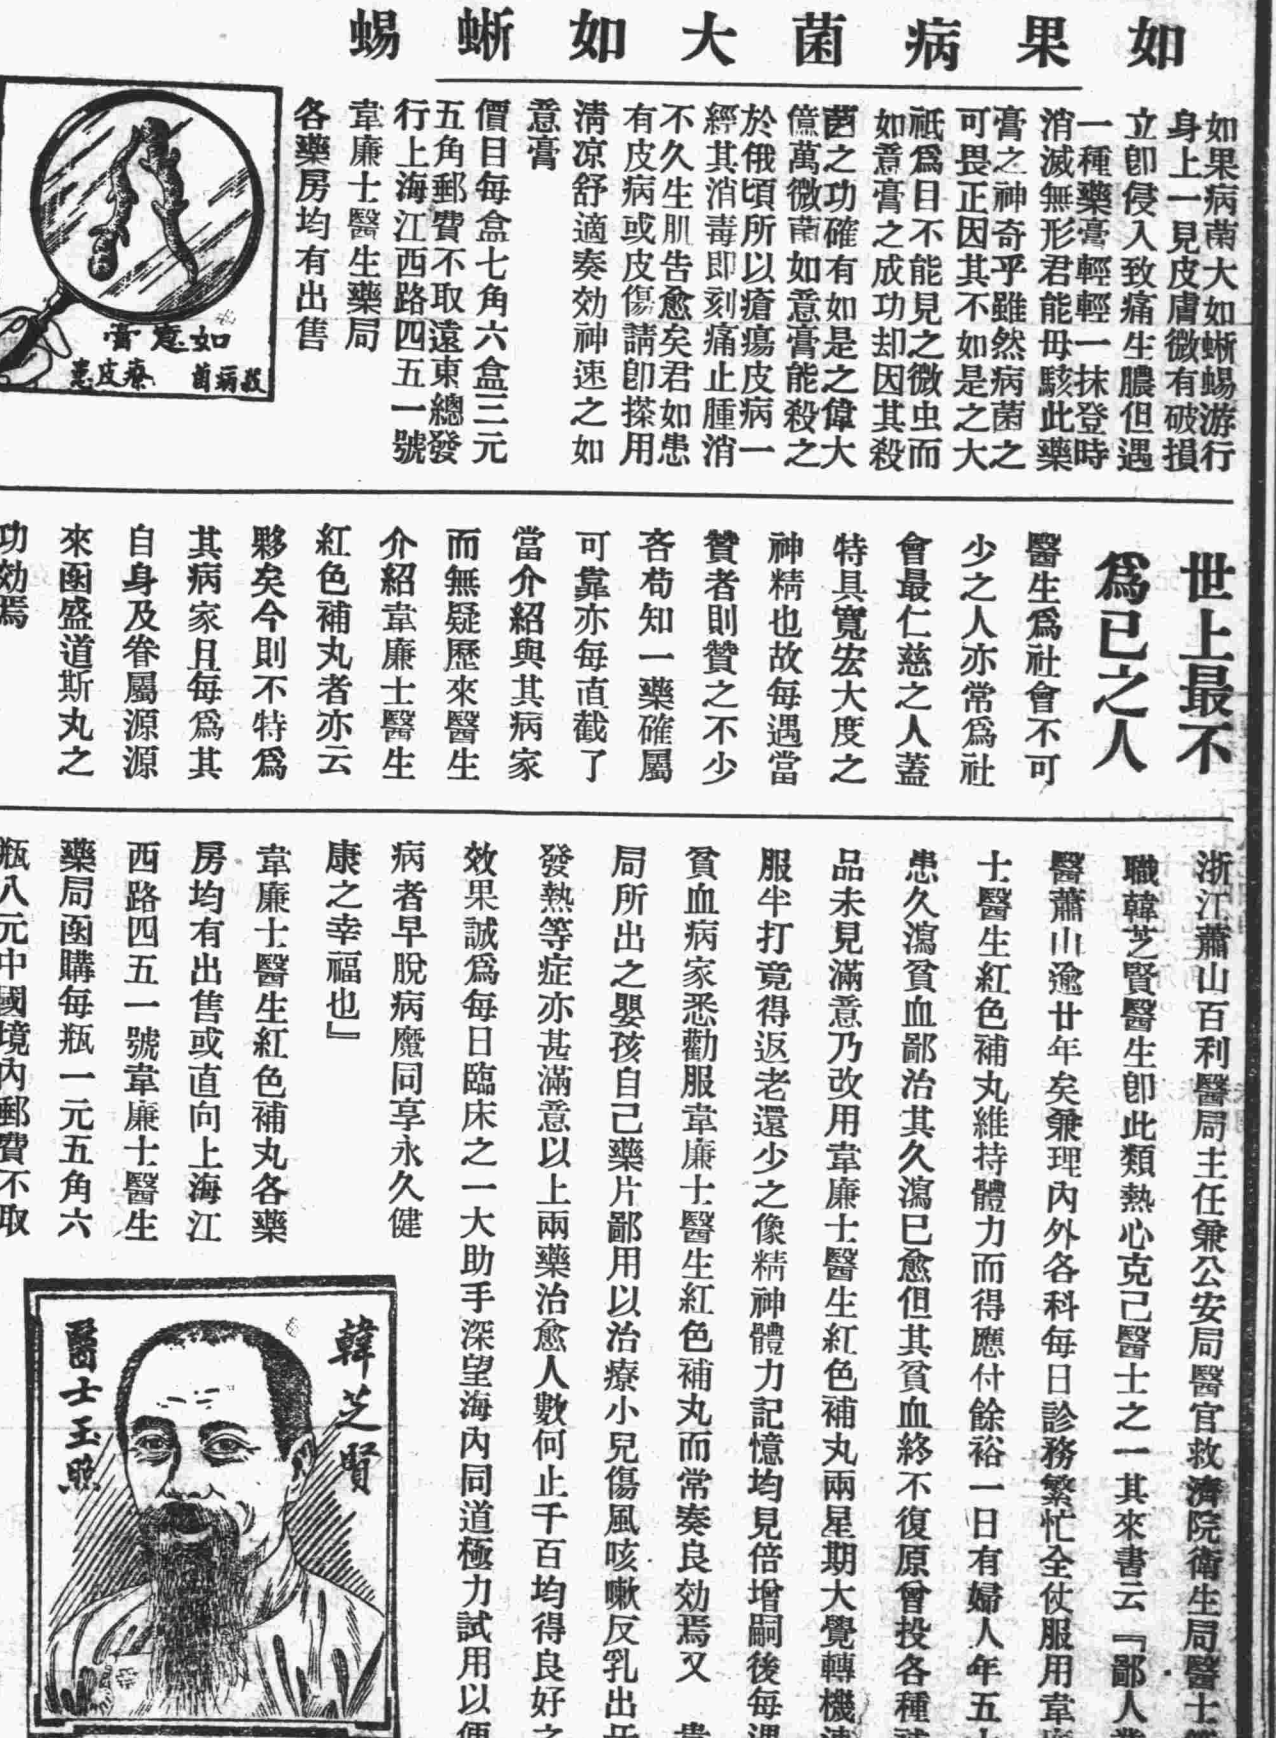 如果病菌大如蜥蜴
如果病菌大如蜥蜴游行
身上一見皮膚微有破損
立卽侵入致痛生膿但遇
一種藥膏輕輕一抹登時
消滅無形君能毋駭此藥
膏之神奇乎雖然病菌之
可畏正因其不如是之大
祇爲目不能見之微虫而
如意膏之成功却因其殺
菌之功確有如是之偉大
億萬微菌如意膏能殺之
於俄頃所以瘡瘍皮病一
經其消毒卽刻痛止腫消
不久生肌告愈矣君如患
有皮病或皮傷請卽搽用
淸凉舒適奏効神速之如
意膏
價目每盒七角六盒三元
五角郵費不取遠東總發
行上海江西路四五一號
韋廉士醫生藥局
各藥房均有出售
如意膏
殺病菌
療皮患
世上最不
爲已之人
醫生爲社會不可
少之人亦常爲社
會最仁慈之人蓋
特具寬宏大度之
神精也故每遇當
贊者則贊之不少
吝苟知一藥確屬
可靠亦每直截了
當介紹與其病家
而無疑歷來醫生
介紹韋廉士醫生
紅色補丸者亦云
夥矣今則不特爲
其病家且每爲其
自身及眷屬源源
來函盛道斯丸之
功効焉
浙江蕭山百利醫局主任兼公安局醫官救濟院衛生局醫士
職韓芝賢醫生卽此類熱心克己醫士之一其來書云『鄙人業
醫蕭山逾廿年矣兼理內外各科每日診務繁忙全仗服用韋廉
士醫生紅色補丸維持體力而得應付餘裕一日有婦人年五十
患久瀉貧血鄙治其久瀉巳愈但其貧血終不復原曾投各種補
品未見滿意乃改用韋廉士醫生紅色補丸兩星期大覺轉機連
服半打竟得返老還少之像精神體力記憶均見倍增嗣後每遇
貧血病家悉勸服韋廉士醫生紅色補丸而常奏良効焉又 貴
局所出之嬰孩自己藥片鄙用以治療小兒傷風咳嗽反乳出牙
發熱等症亦甚滿意以上兩藥治愈人數何止千百均得良好之
效果誠爲每日臨床之一大助手深望海內同道極力試用以便
病者早脫病魔同享永久健
康之幸福也』
韋廉士醫生紅色補丸各藥
房均有出售或直向上海江
西路四五一號韋廉士醫生
藥局函購每瓶一元五角六
瓶八元中國境內郵費不取
韓芝賢
醫士玉照